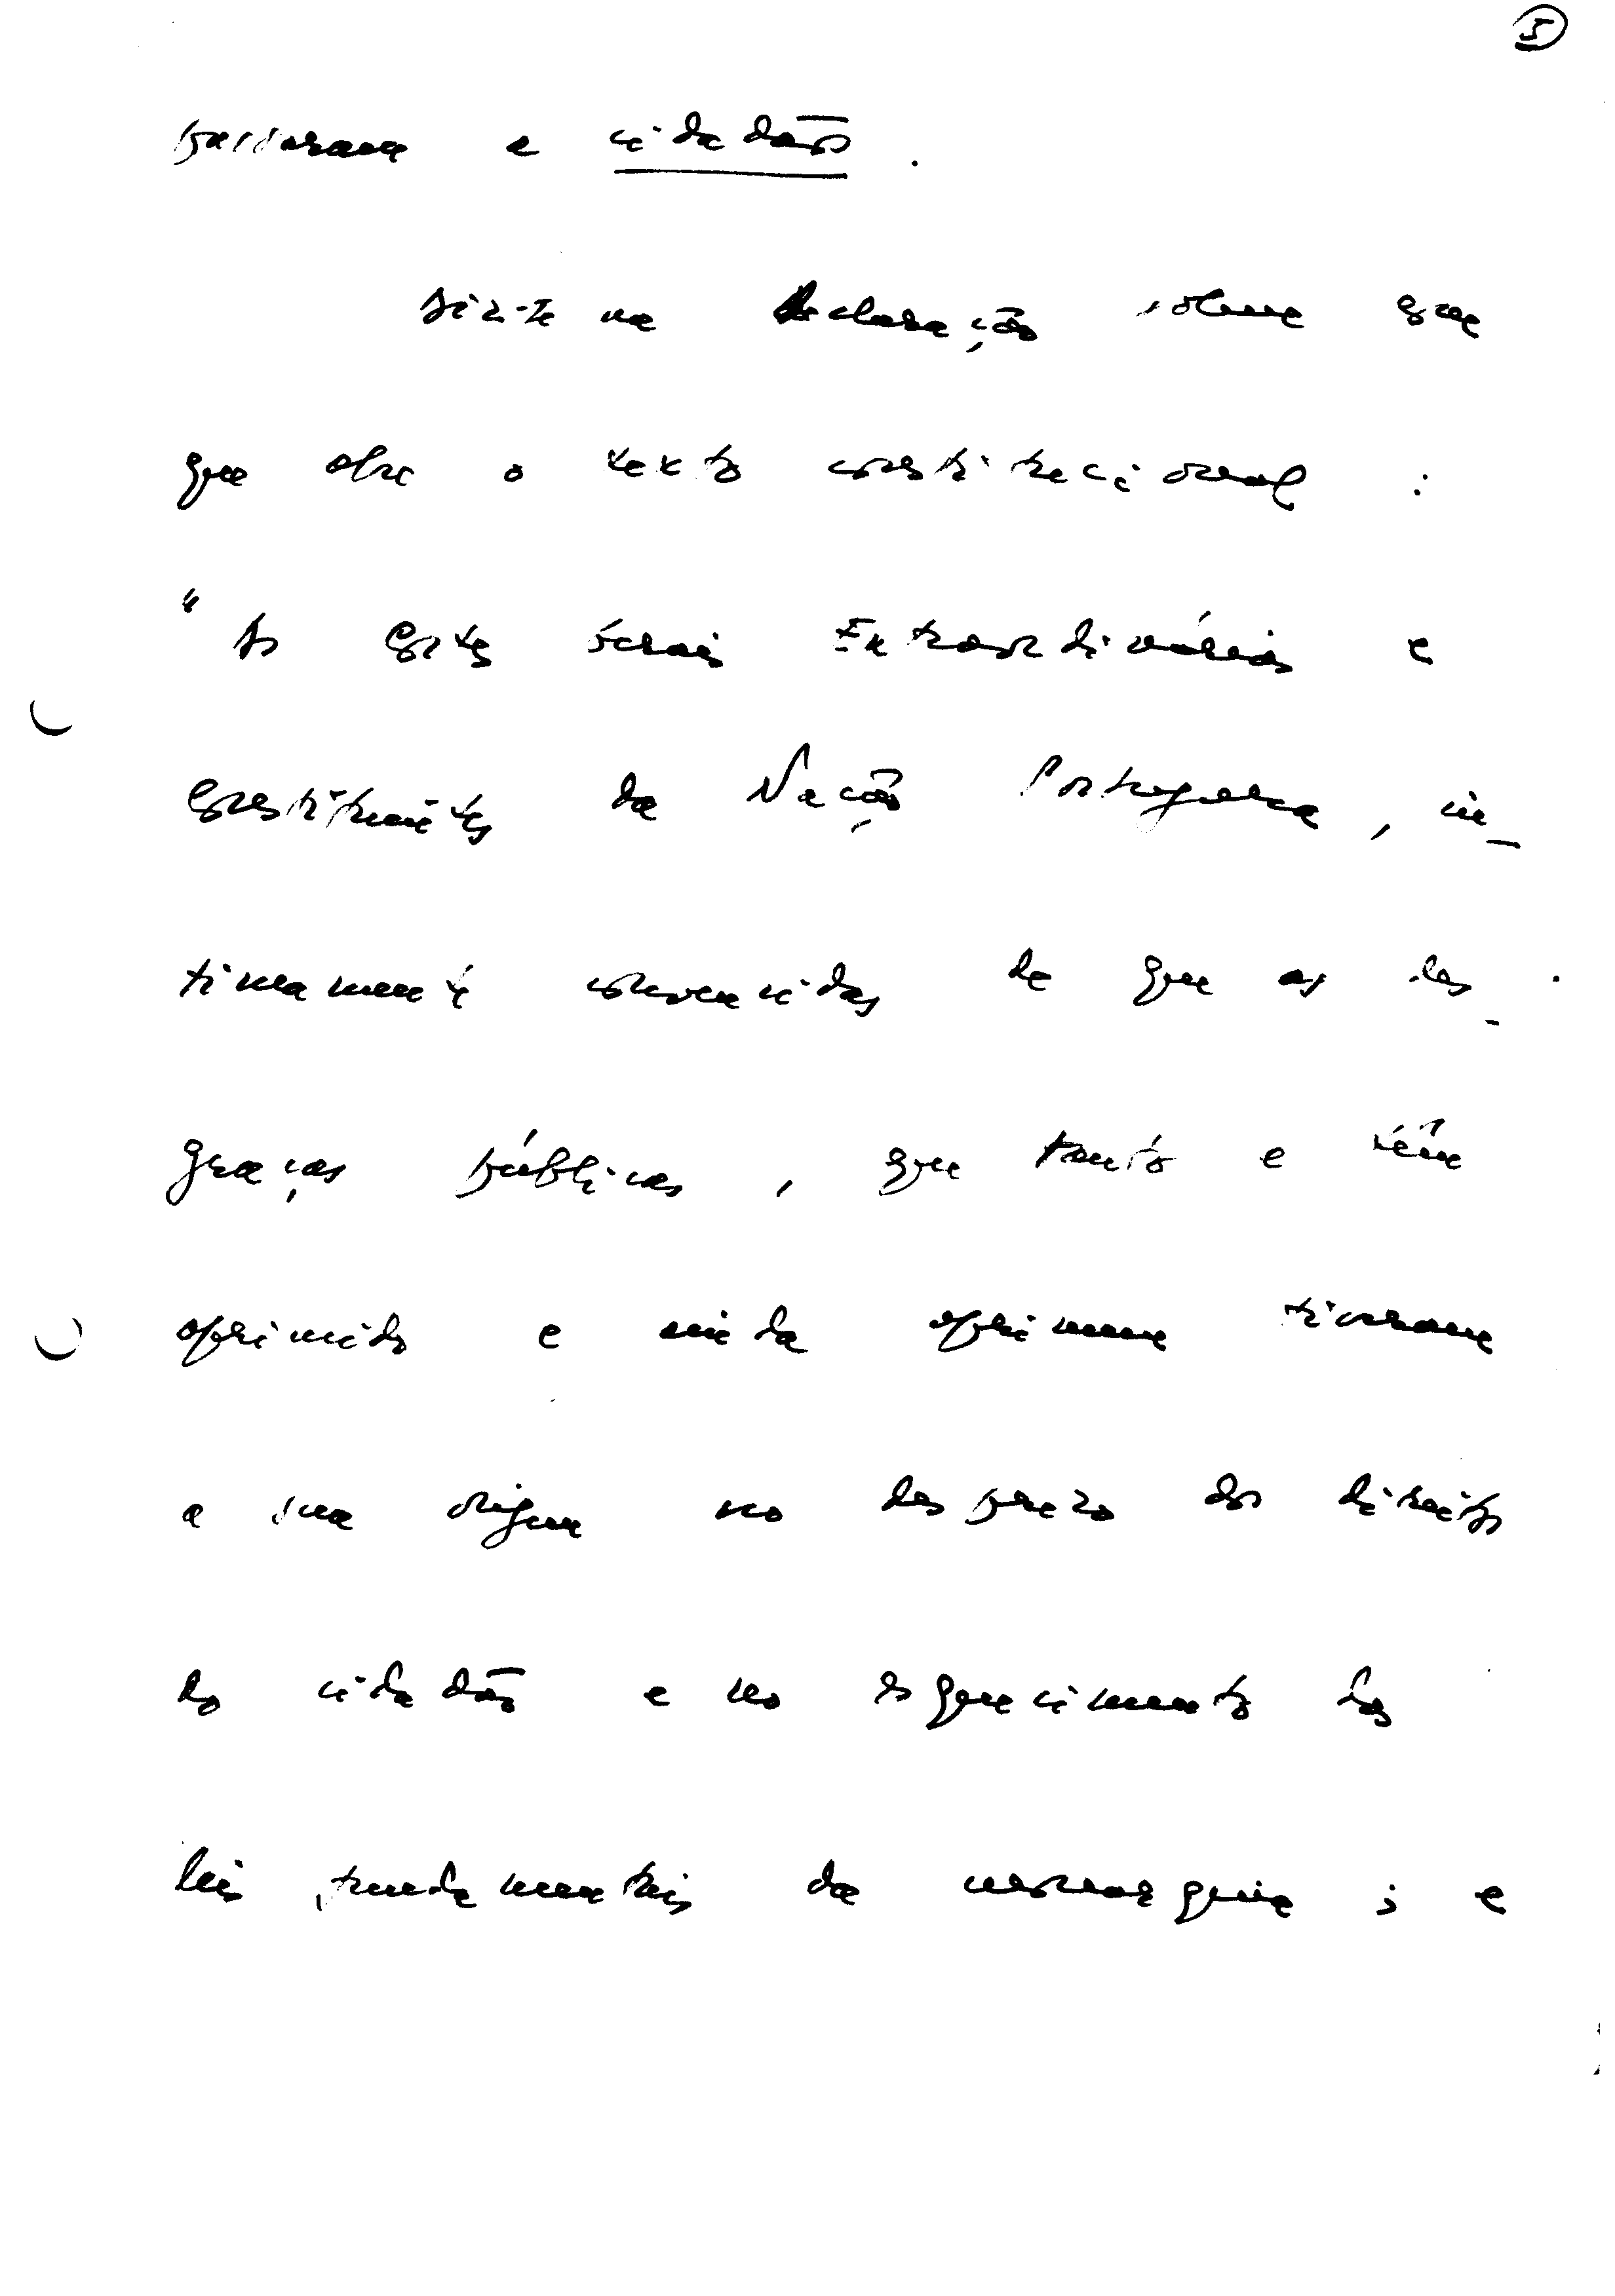 5
passaram a cidadãos.
Diz-se na declaração solene com
que abre o texto constitucional:
"As Cortes Gerais Extraordinárias e
Constituintes da Nação Portuguesa, in-
timamente convencidas de que as des-
graças públicas, que tanto a têm
oprimido e ainda oprimem tiveram
a sua origem no desprezo dos direitos
do cidadão e no esquecimento das
leis fundamentais da monarquia; e